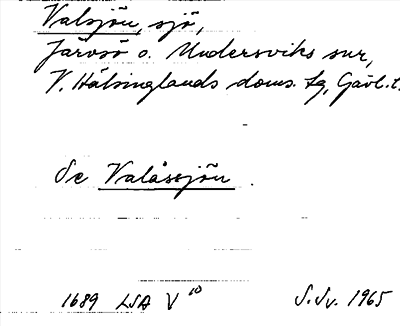 Valsjön, sjö,
Järvsö o. Undersviks snr,
V. Hälsinglands doms. tg, Gävl.l.
Se Valåssjön.
1689 LSA V 10 S.Sv. 1965